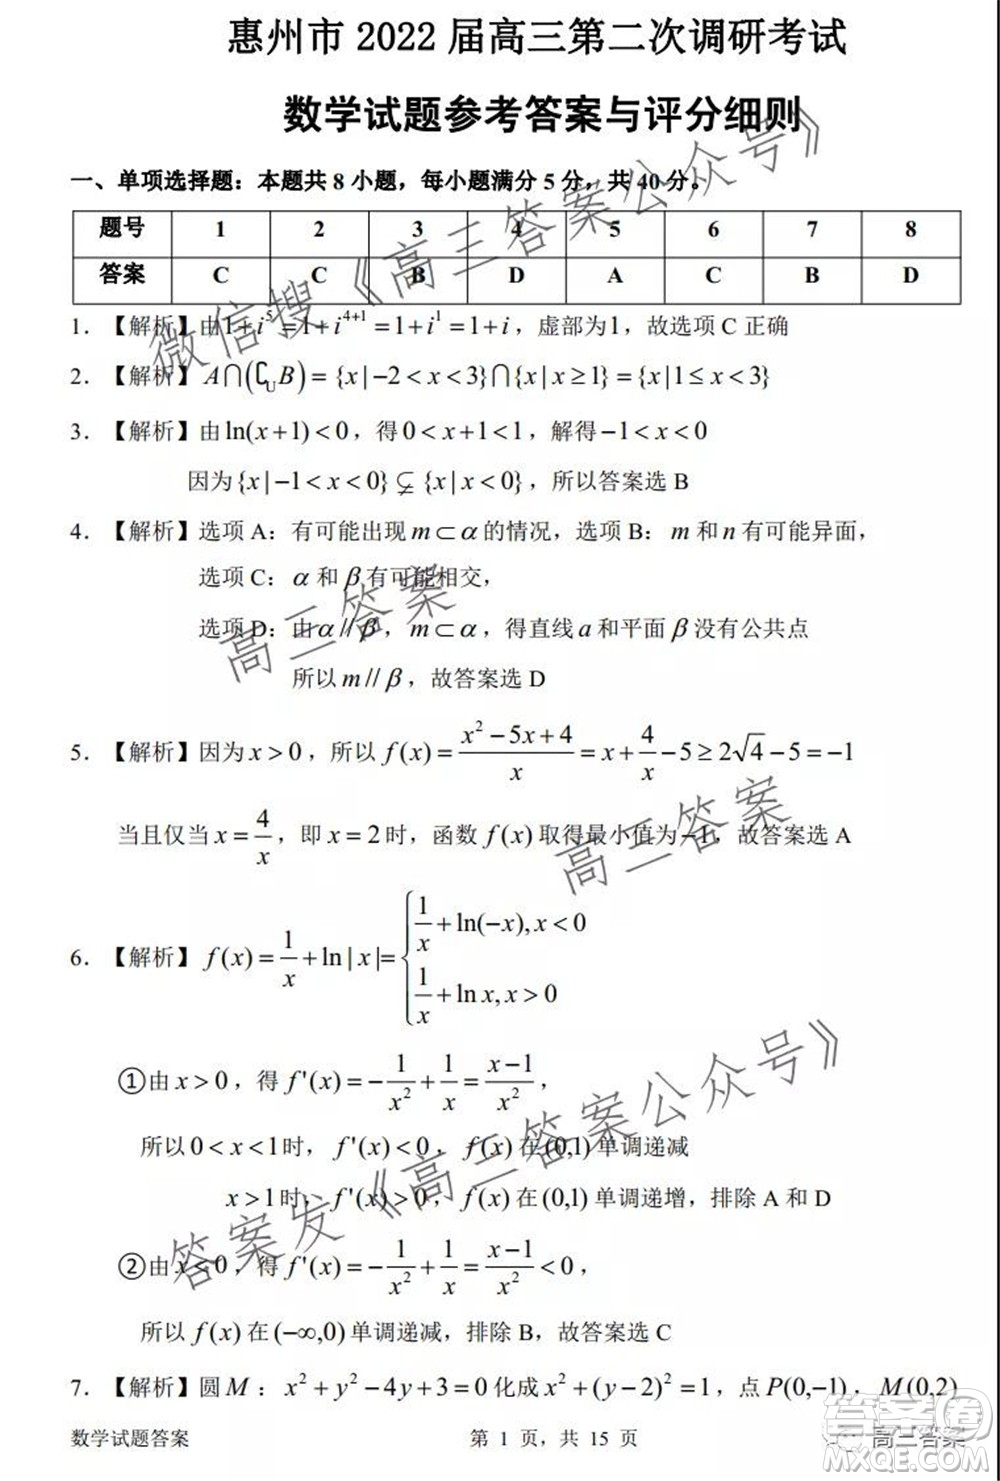 惠州市 2022 届高三第二次调研考试
数学试题参考答案与评分细则
一、单项选择题：本题共 8 小题，每小题满分 5 分，共 40 分。
题号 1 2 3 4 5 6 7 8
答案 C C B D A C B D
1. 【解析】由 1+i^5 = 1+i^{4+1} = 1+i^1 = 1+i，虚部为 1，故选项 C 正确
2. 【解析】A∩(∁_U B) = {x|-2<x<3}∩{x|x≥1} = {x|1≤x<3}
3. 【解析】由 ln(x+1)<0，得 0<x+1<1，解得 -1<x<0
因为{x|-1<x<0}⫋{x|x<0}，所以答案选 B
4. 【解析】选项 A：有可能出现 m⊂α 的情况，选项 B：m 和 n 有可能异面，
选项 C：α 和 β 有可能相交，
选项 D：由 α//β，m⊂α，得直线 a 和平面 β 没有公共点
所以 m//β，故答案选 D
5. 【解析】因为 x>0，所以 f(x)=(x²-5x+4)/x=x+4/x-5≥2√4-5=-1
当且仅当 x=4/x，即 x=2 时，函数 f(x) 取得最小值为 -1，故答案选 A
6. 【解析】f(x)=1/x+ln|x|={1/x+ln(-x),x<0
1/x+ln x,x>0
①由 x>0，得 f'(x)=-1/x²+1/x=(x-1)/x²，
所以 0<x<1 时，f'(x)<0，f(x) 在 (0,1) 单调递减
x>1 时，f'(x)>0，f(x) 在 (0,1) 单调递增，排除 A 和 D
②由 x<0，得 f'(x)=-1/x²+1/x=(x-1)/x²<0，
所以 f(x) 在 (-∞,0) 单调递减，排除 B，故答案选 C
7. 【解析】圆 M：x²+y²-4y+3=0 化成 x²+(y-2)²=1，点 P(0,-1)，M(0,2)
数学试题答案 第 1 页，共 15 页 高三答案
微信搜《高三答案公众号》
高三答案
高三答案
答案发《高三答案公众号》
答案圈